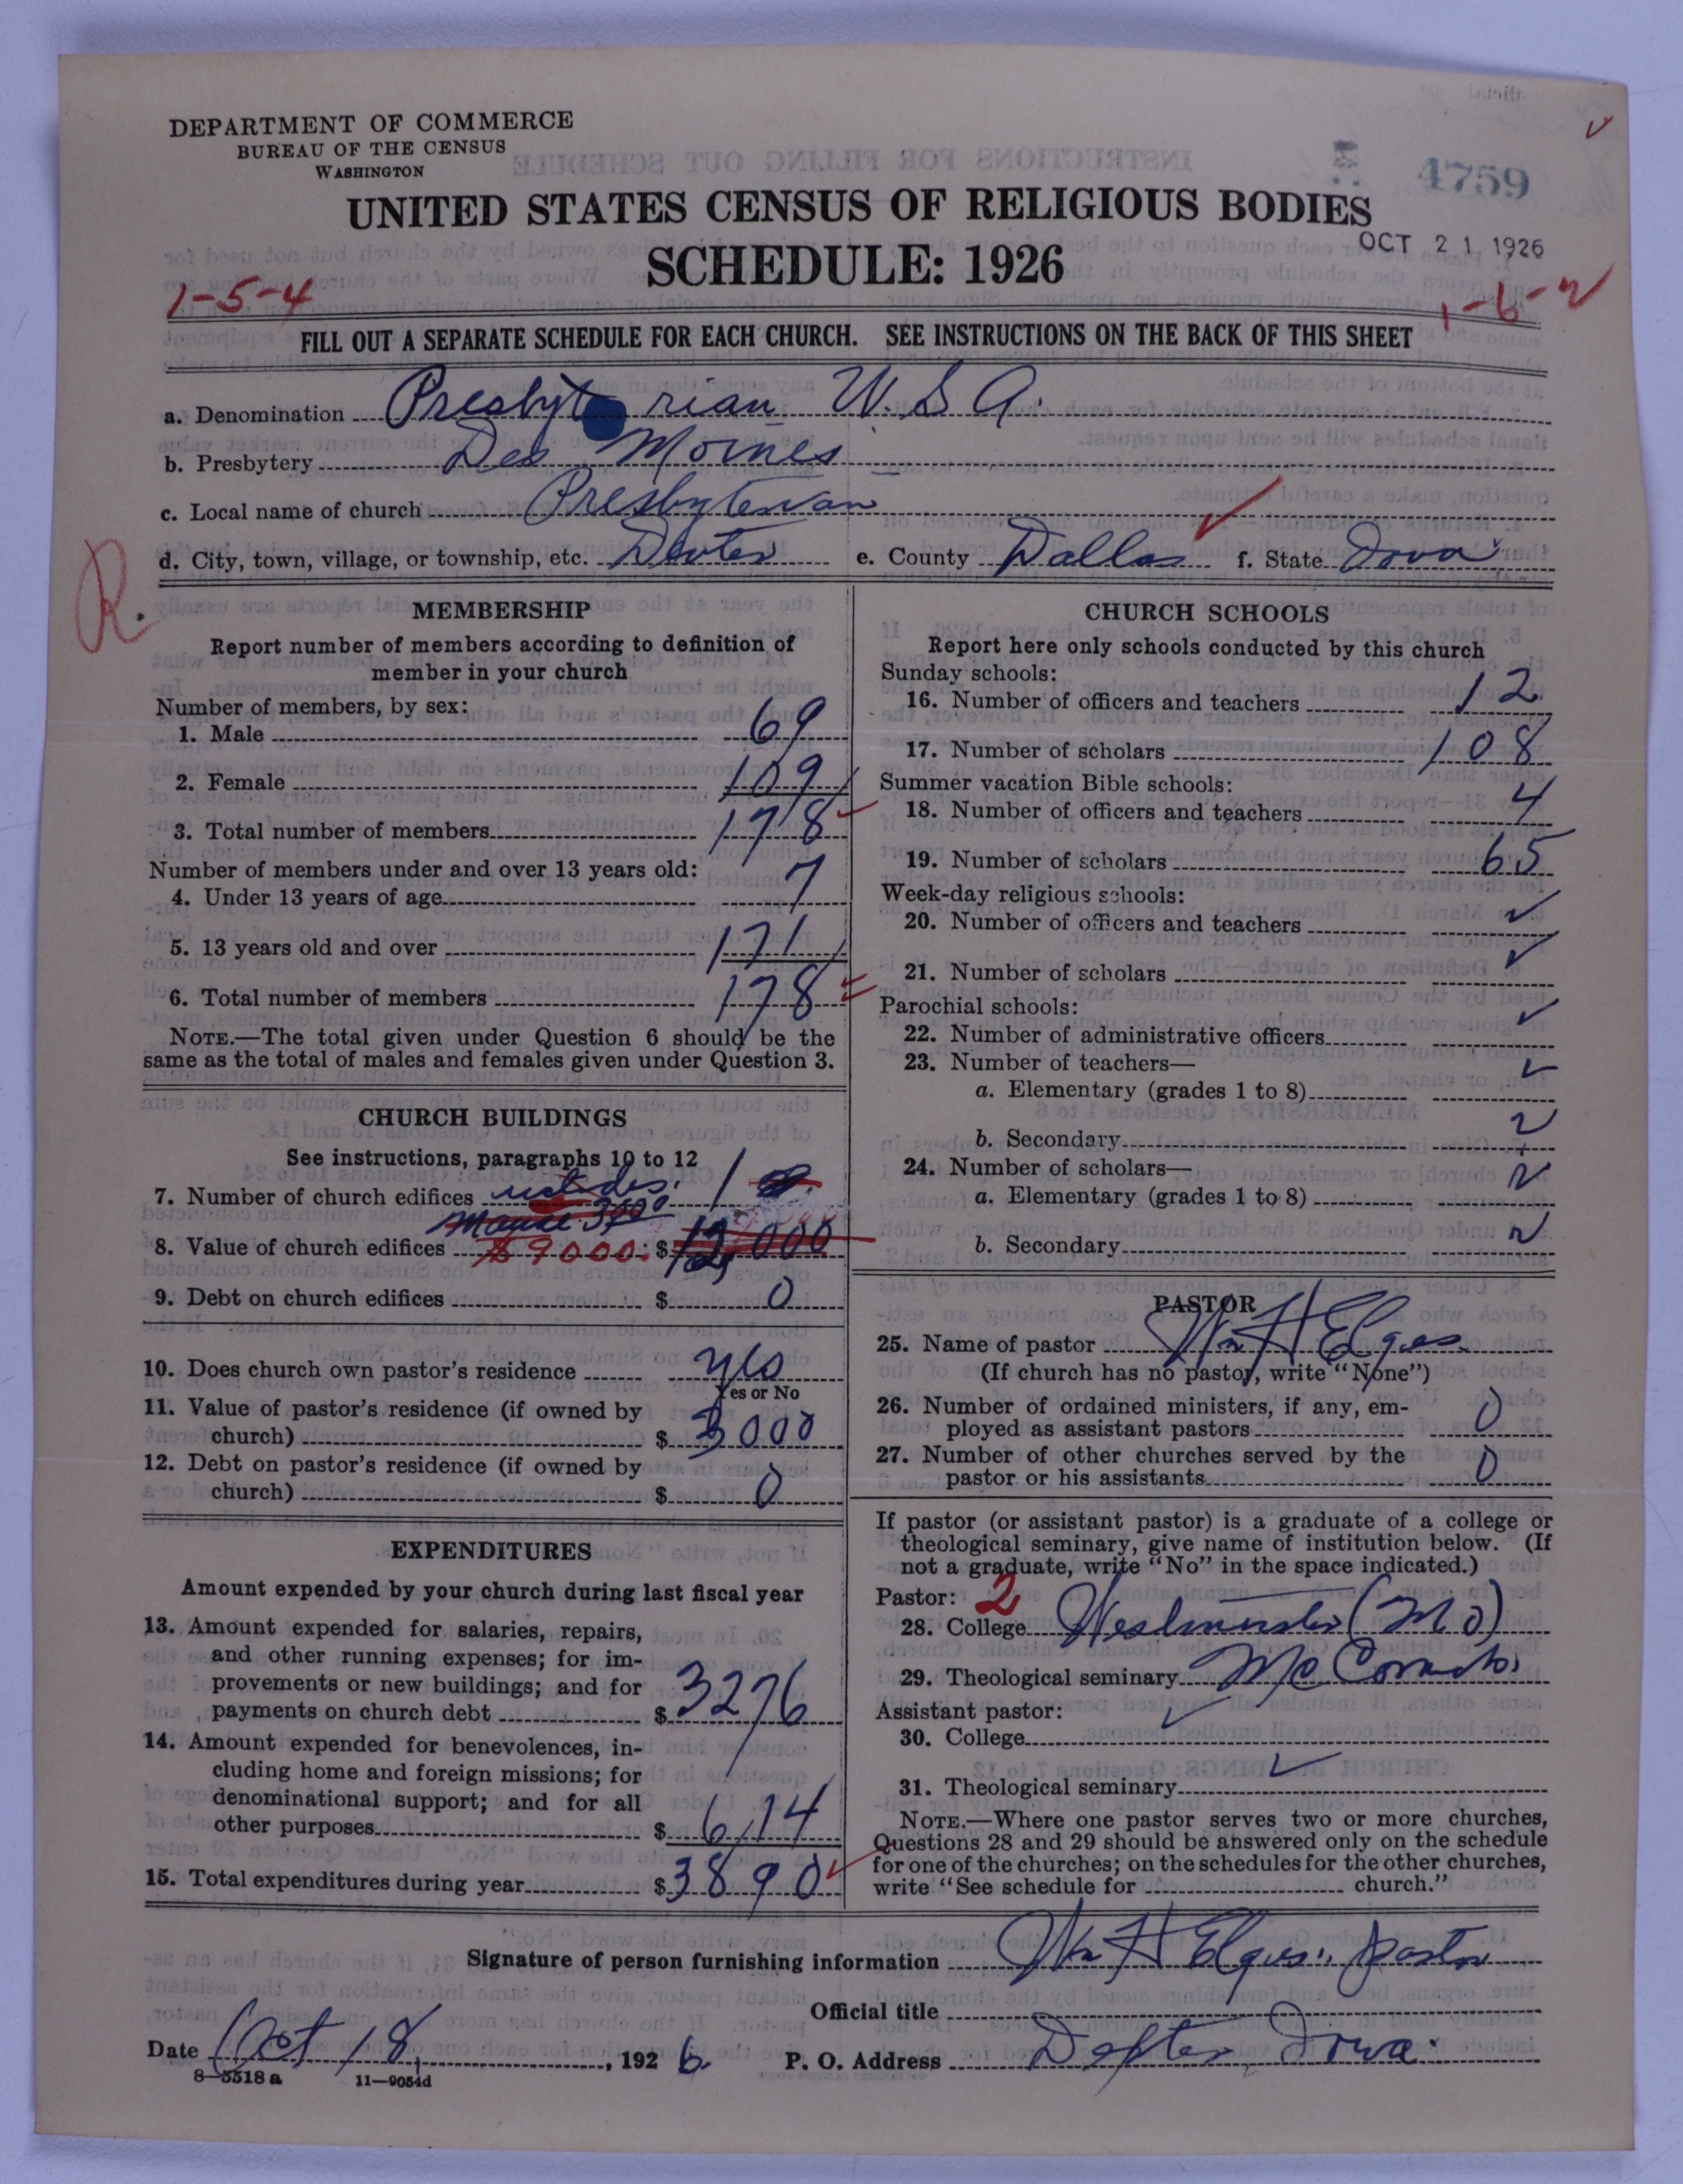 DEPARTMENT OF COMMERCE
BUREAU OF THE CENSUS
WASHINGTON
4759
UNITED STATES CENSUS OF RELIGIOUS BODIES
SCHEDULE: 1926
OCT 21 1926
1-5-4
1-6-2
FILL OUT A SEPARATE SCHEDULE FOR EACH CHURCH. SEE INSTRUCTIONS ON THE BACK OF THIS SHEET
a. Denomination Presbyterian U.S.A.
b. Presbytery Des Moines
c. Local name of church Presbyterian
d. City, town, village, or township, etc. Dexter e. County Dallas f. State Iowa
R.
MEMBERSHIP
Report number of members according to definition of
member in your church
Number of members, by sex:
1. Male 69
2. Female 109
3. Total number of members 178
Number of members under and over 13 years old:
4. Under 13 years of age 7
5. 13 years old and over 171
6. Total number of members 178
NOTE.—The total given under Question 6 should be the
same as the total of males and females given under Question 3.
CHURCH BUILDINGS
See instructions, paragraphs 10 to 12
7. Number of church edifices includes 1
Manse 3000
8. Value of church edifices $9000. $12,000
9. Debt on church edifices $ 0
10. Does church own pastor's residence yes
Yes or No
11. Value of pastor's residence (if owned by
church) $ 3000
12. Debt on pastor's residence (if owned by
church) $ 0
EXPENDITURES
Amount expended by your church during last fiscal year
13. Amount expended for salaries, repairs,
and other running expenses; for im-
provements or new buildings; and for
payments on church debt $ 3276
14. Amount expended for benevolences, in-
cluding home and foreign missions; for
denominational support; and for all
other purposes $ 614
15. Total expenditures during year $ 3890
CHURCH SCHOOLS
Report here only schools conducted by this church
Sunday schools:
16. Number of officers and teachers 12
17. Number of scholars 108
Summer vacation Bible schools:
18. Number of officers and teachers 4
19. Number of scholars 65
Week-day religious schools:
20. Number of officers and teachers
21. Number of scholars
Parochial schools:
22. Number of administrative officers
23. Number of teachers—
a. Elementary (grades 1 to 8)
b. Secondary
24. Number of scholars—
a. Elementary (grades 1 to 8)
b. Secondary
PASTOR
25. Name of pastor Wm H Elges
(If church has no pastor, write "None")
26. Number of ordained ministers, if any, em-
ployed as assistant pastors 0
27. Number of other churches served by the
pastor or his assistants 0
If pastor (or assistant pastor) is a graduate of a college or
theological seminary, give name of institution below. (If
not a graduate, write "No" in the space indicated.)
Pastor: 2
28. College Westminster (Mo)
29. Theological seminary McCormick
Assistant pastor:
30. College
31. Theological seminary
NOTE.—Where one pastor serves two or more churches,
Questions 28 and 29 should be answered only on the schedule
for one of the churches; on the schedules for the other churches,
write "See schedule for church."
Signature of person furnishing information Wm H Elges, pastor
Official title
Date Oct 18, 1926 P. O. Address Dexter, Iowa.
8—5518a 11—9054d